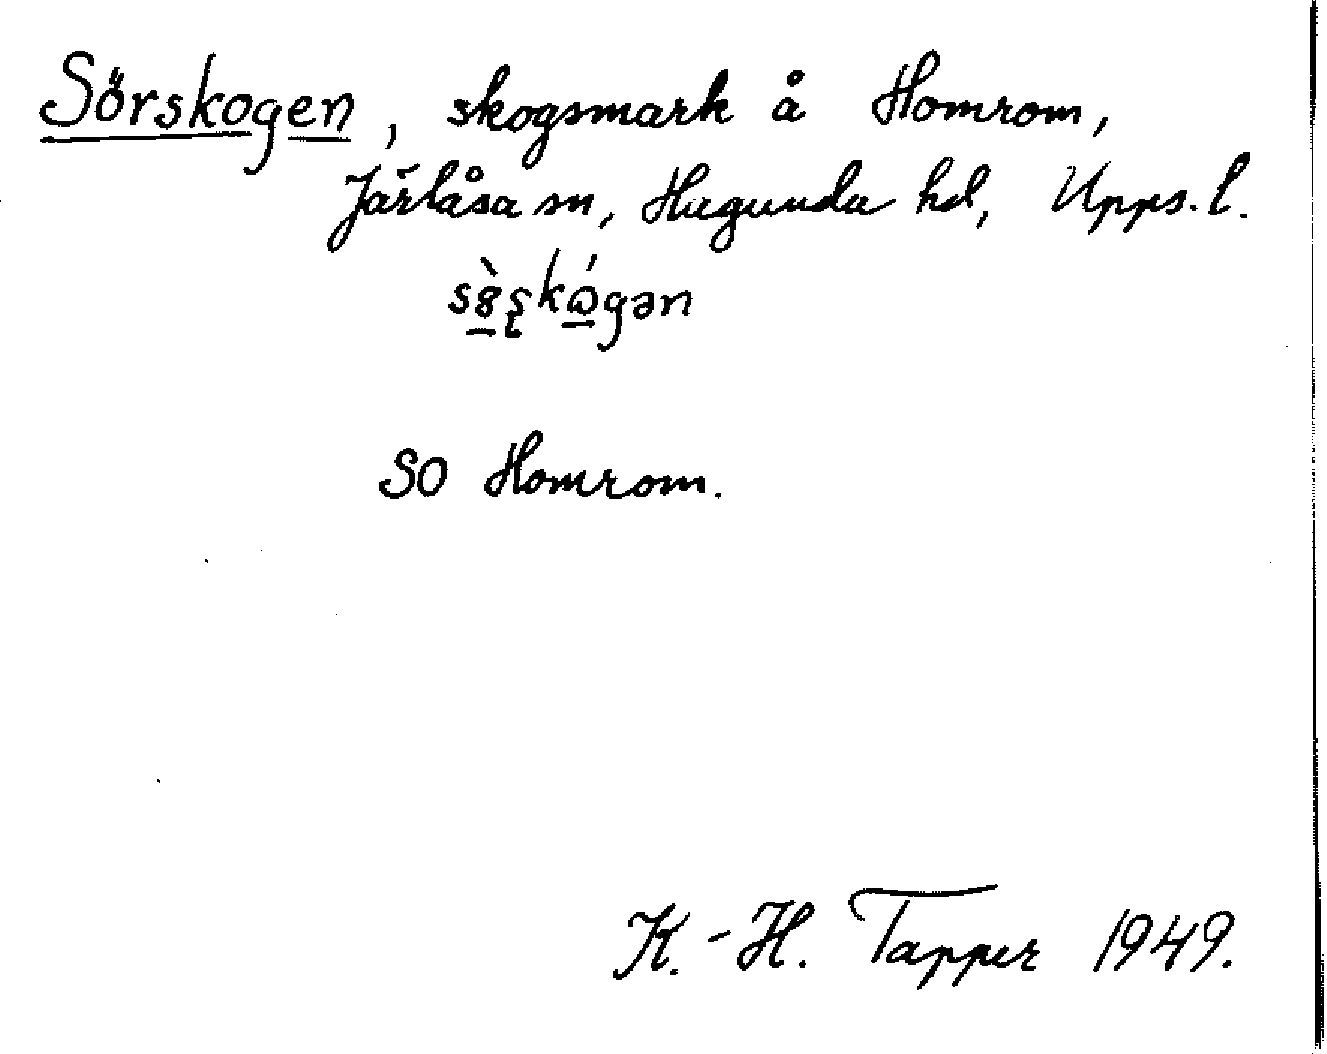 Sörskogen, skogsmark å Homrom,
Järlåsa sn, Hagunda hd, Upps. l.
SO Homrom.
K.-H. Tapper 1949.